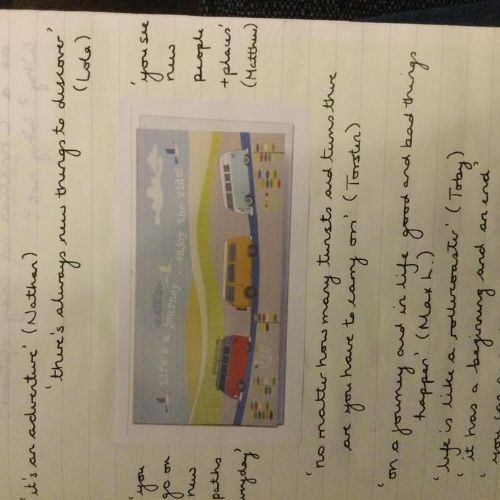 'it's an adventure' (Nathan)
'there's always new things to discover'
(Lola)
'you
go on
new
paths
'you see
new
people
+ places'
(Matthew)
Life's a journey...enjoy the ride!
'no matter how many twists and turns there
are you have to carry on' (Torsten)
'on a journey and in life good and bad things
happen' (Max L.)
'life is like a rollercoaster' (Toby)
'it has a beginning and an end'
'you